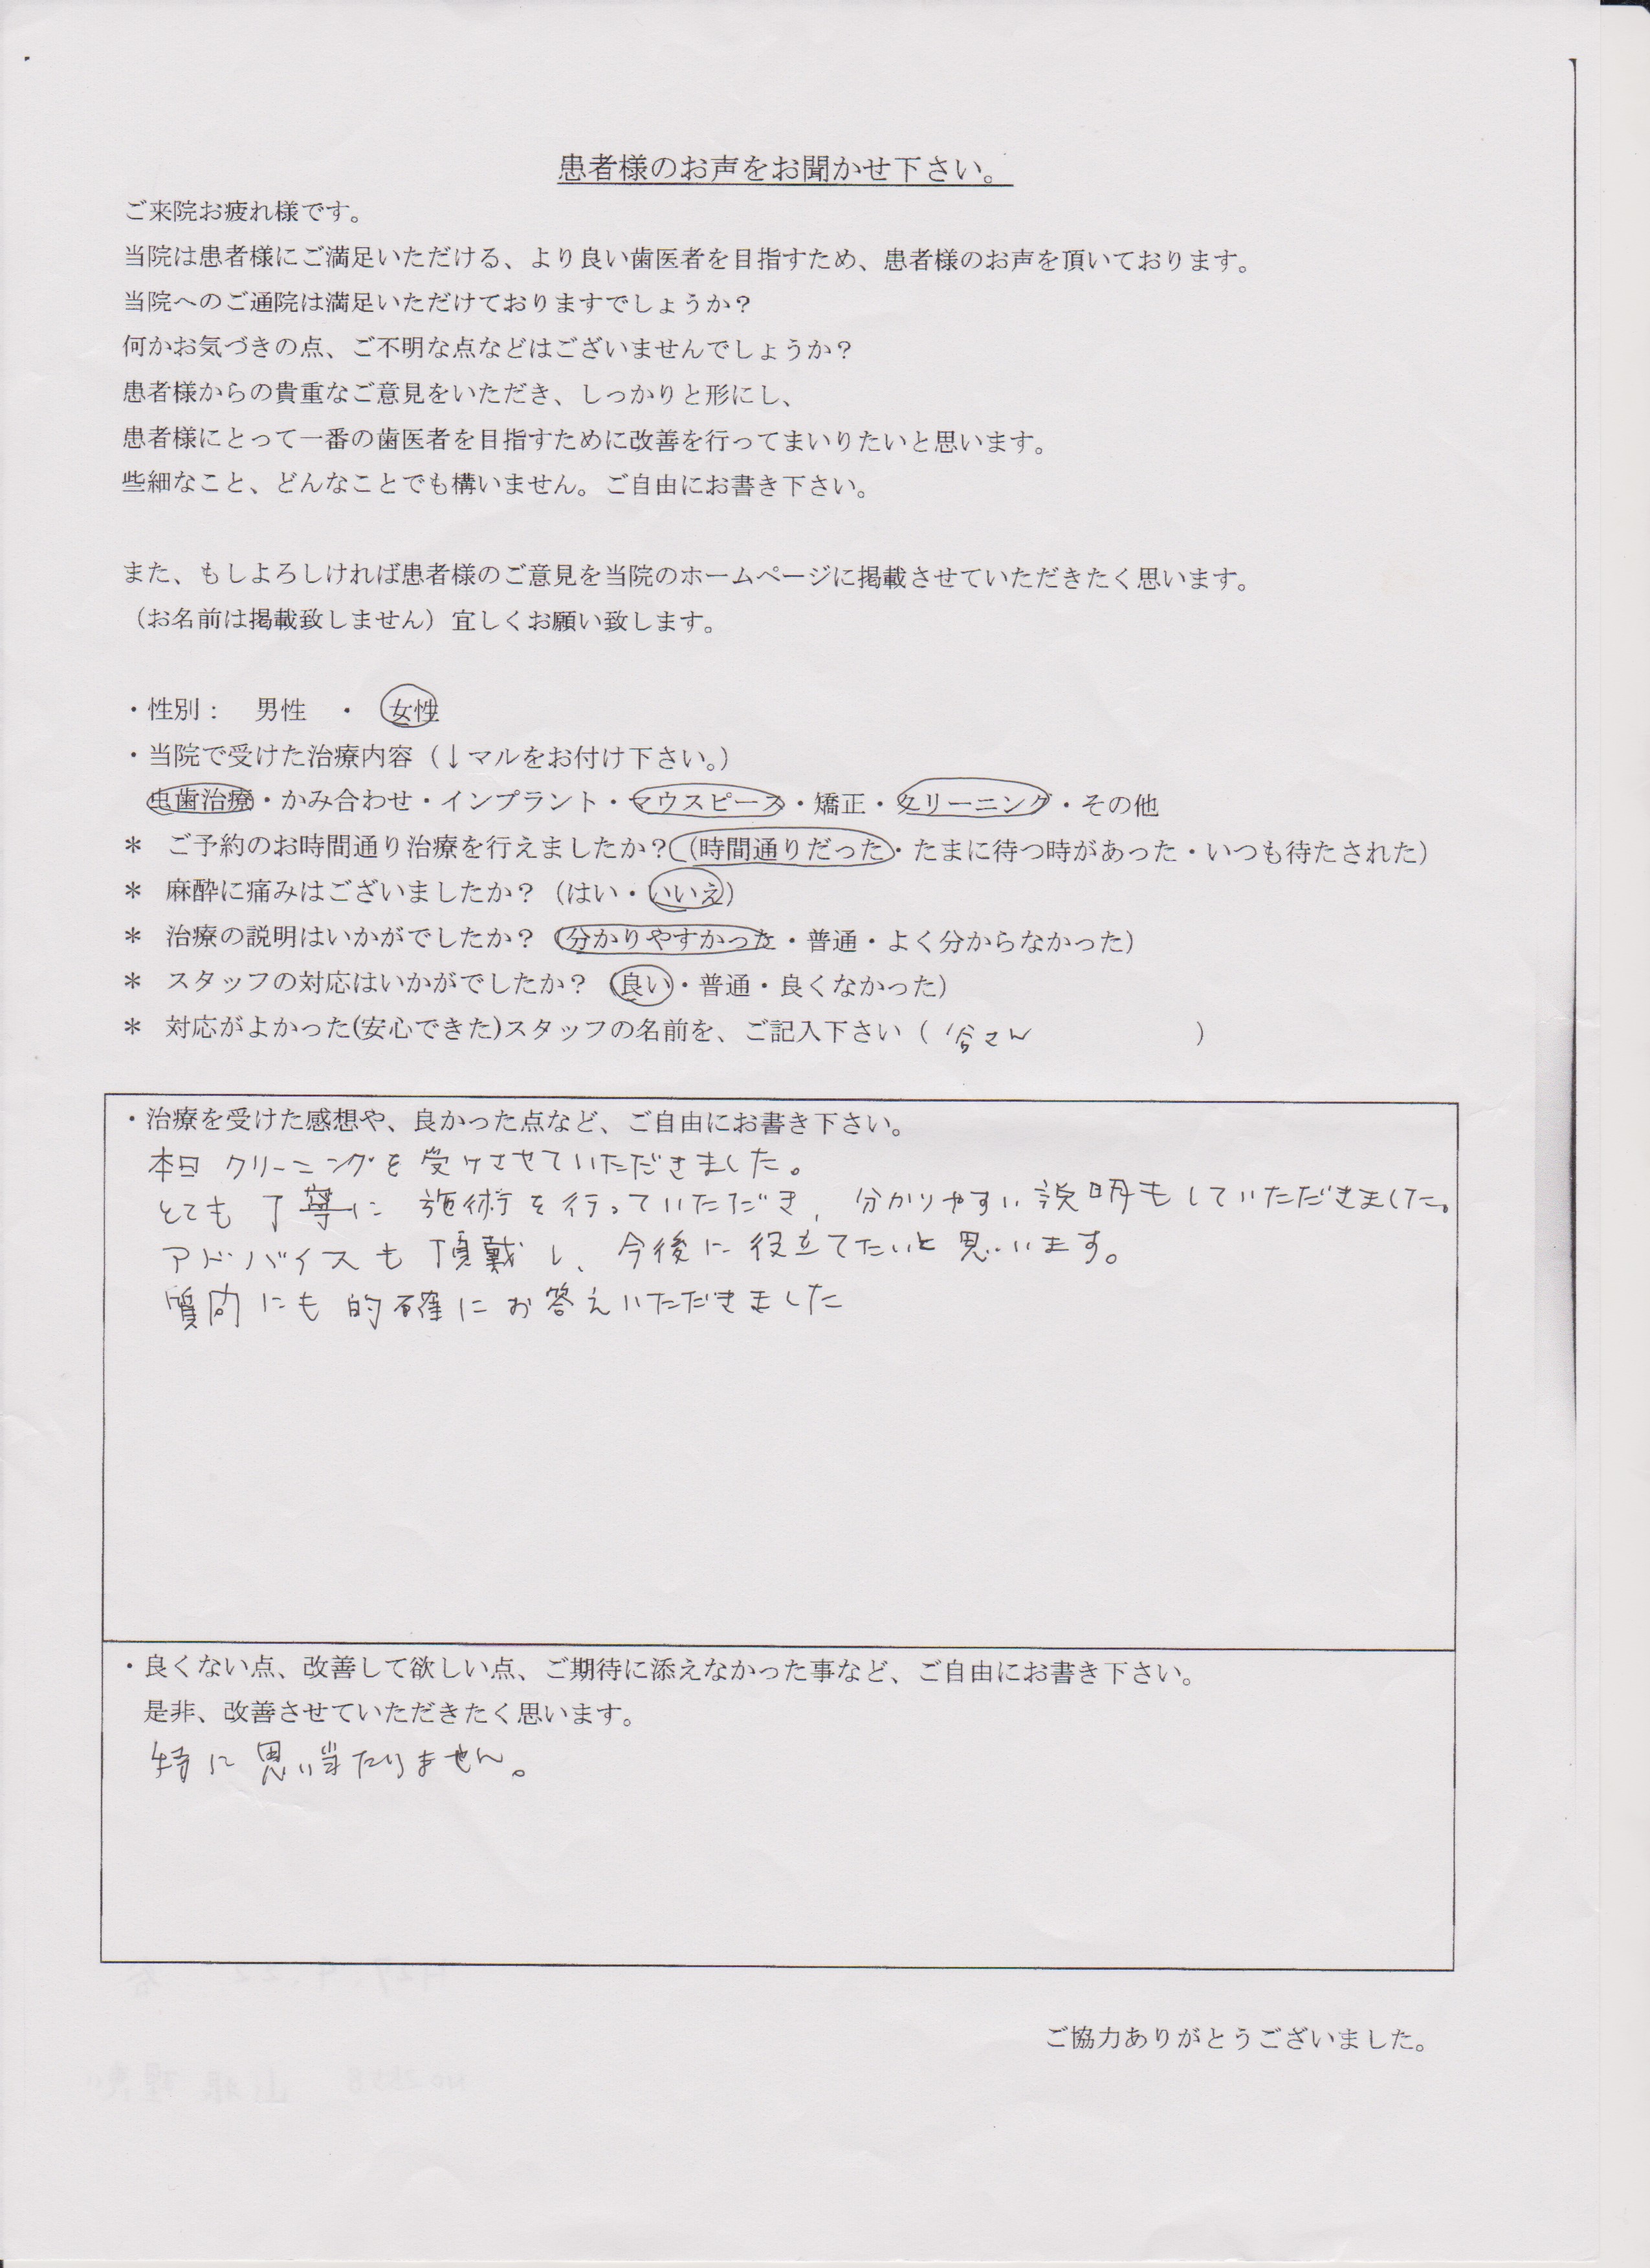 患者様のお声をお聞かせ下さい。
ご来院お疲れ様です。
当院は患者様にご満足いただける、より良い歯医者を目指すため、患者様のお声を頂いております。
当院へのご通院は満足いただけておりますでしょうか?
何かお気づきの点、ご不明な点などはございませんでしょうか?
患者様からの貴重なご意見をいただき、しっかりと形にし、
患者様にとって一番の歯医者を目指すために改善を行ってまいりたいと思います。
些細なこと、どんなことでも構いません。ご自由にお書き下さい。
また、もしよろしければ患者様のご意見を当院のホームページに掲載させていただきたく思います。
(お名前は掲載致しません)宜しくお願い致します。
・性別: 男性 ・ 女性
・当院で受けた治療内容(↓マルをお付け下さい。)
虫歯治療・かみ合わせ・インプラント・マウスピース・矯正・クリーニング・その他
* ご予約のお時間通り治療を行えましたか?(時間通りだった・たまに待つ時があった・いつも待たされた)
* 麻酔に痛みはございましたか?(はい・いいえ)
* 治療の説明はいかがでしたか?(分かりやすかった・普通・よく分からなかった)
* スタッフの対応はいかがでしたか?(良い・普通・良くなかった)
* 対応がよかった(安心できた)スタッフの名前を、ご記入下さい( さん )
・治療を受けた感想や、良かった点など、ご自由にお書き下さい。
本日クリーニングを受けさせていただきました。
とても丁寧に施術を行っていただき、分かりやすい説明もしていただきました。
アドバイスも頂戴し、今後に役立てたいと思います。
質問にも的確にお答えいただきました
・良くない点、改善して欲しい点、ご期待に添えなかった事など、ご自由にお書き下さい。
是非、改善させていただきたく思います。
特に思い当たりません。
ご協力ありがとうございました。